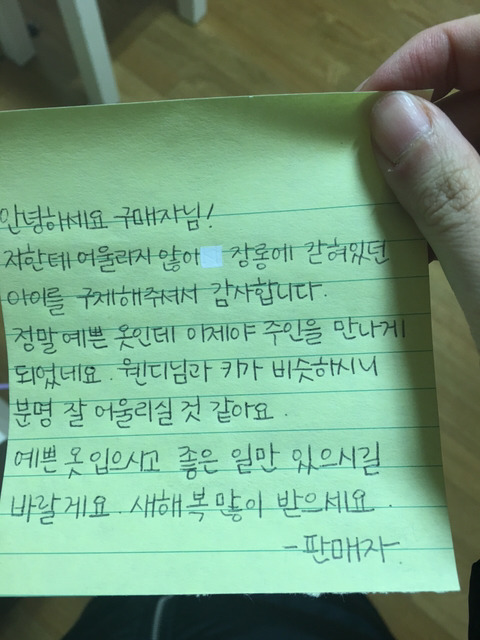 안녕하세요 구매자님!
저한테 어울리지 않아 장롱에 갇혀있던
아이를 구제해주셔서 감사합니다.
정말 예쁜 옷인데 이제야 주인을 만나게
되었네요. 웬디님과 키가 비슷하시니
분명 잘 어울리실 것 같아요.
예쁜 옷 입으시고 좋은 일만 있으시길
바랄게요. 새해 복 많이 받으세요.
-판매자-